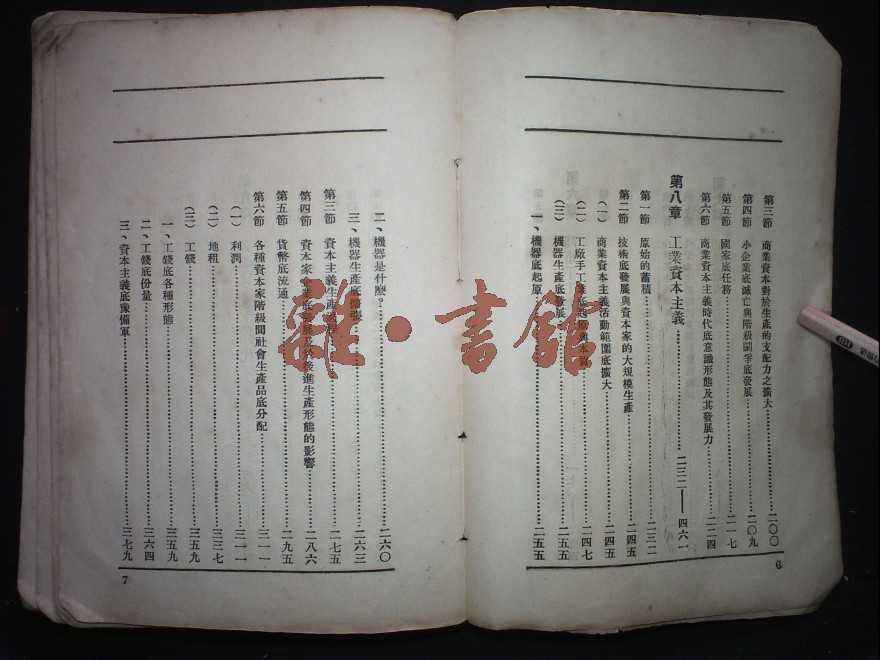 第三節　商業資本對於生產的支配力之擴大…………二〇〇
第四節　小企業底滅亡與階級鬭爭底發展…………二〇九
第五節　國家底任務…………二一七
第六節　商業資本主義時代底意識形態及其發展力…………二二四
第八章　工業資本主義…………二三二——四六一
第一節　原始的蓄積…………二三二
第二節　技術底發展與資本家的大規模生產…………二四五
（一）　商業資本主義活動範圍底擴大…………二四五
（二）　工廠手工業底起原與本質…………二四七
（三）　機器生產底發展…………二五五
一、機器底起原…………二五五
6
二、機器是什麼？…………二六〇
三、機器生產底擴張…………二六三
第三節　資本主義生產…………二七五
第四節　資本家企業底發展及後進生產形態的影響…………二八六
第五節　貨幣底流通…………二九五
第六節　各種資本家階級間社會生產品底分配…………三一一
（一）　利潤…………三一一
（二）　地租…………三三七
（三）　工錢…………三五九
一、工錢底各種形態…………三五九
二、工錢底份量…………三六四
三、資本主義底豫備軍…………三七九
7
雜·書館
HB